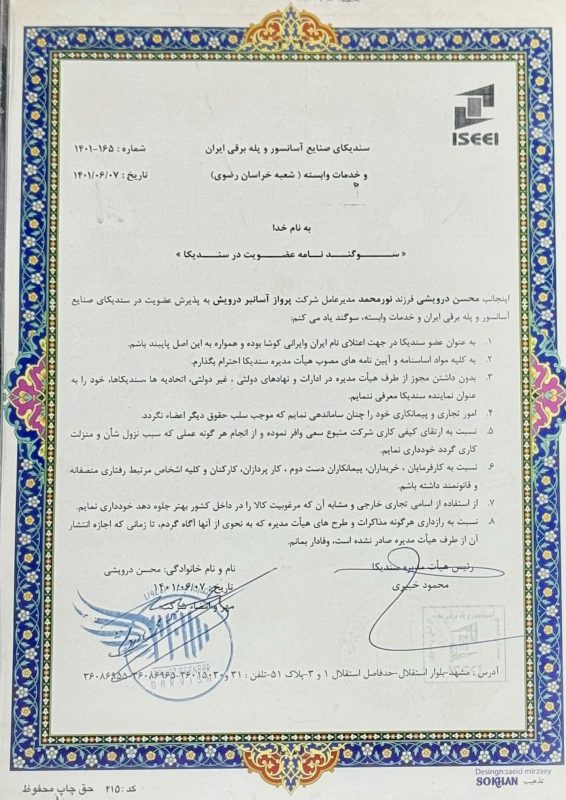 ISEEI
سندیکای صنایع آسانسور و پله برقی ایران
شماره : ۱۶۵-۱۴۰۱
و خدمات وابسته ( شعبه خراسان رضوی)
تاریخ : ۱۴۰۱/۰۶/۰۷
به نام خدا
« سوگند نامه عضویت در سندیکا »
اینجانب محسن درویشی فرزند نورمحمد مدیرعامل شرکت پرواز آسانبر درویش به پذیرش عضویت در سندیکای صنایع
آسانسور و پله برقی ایران و خدمات وابسته، سوگند یاد می کنم:
۱. به عنوان عضو سندیکا در جهت اعتلای نام ایران وایرانی کوشا بوده و همواره به این اصل پایبند باشم.
۲. به کلیه مواد اساسنامه و آیین نامه های مصوب هیأت مدیره سندیکا احترام بگذارم.
۳. بدون داشتن مجوز از طرف هیأت مدیره در ادارات و نهادهای دولتی ، غیر دولتی، اتحادیه ها سندیکاها، خود را به
عنوان نماینده سندیکا معرفی ننمایم.
۴. امور تجاری و پیمانکاری خود را چنان ساماندهی نمایم که موجب سلب حقوق دیگر اعضاء نگردد.
۵. نسبت به ارتقای کیفی کاری شرکت متبوع سعی وافر نموده و از انجام هر گونه عملی که سبب نزول شأن و منزلت
کاری گردد خودداری نمایم.
۶. نسبت به کارفرمایان ، خریداران، پیمانکاران دست دوم ، کار پردازان، کارکنان و کلیه اشخاص مرتبط رفتاری منصفانه
و قانونمند داشته باشم.
۷. از استفاده از اسامی تجاری خارجی و مشابه آن که مرغوبیت کالا را در داخل کشور بهتر جلوه دهد خودداری نمایم.
۸. نسبت به رازداری هرگونه مذاکرات و طرح های هیأت مدیره که به نحوی از آنها آگاه گردم، تا زمانی که اجازه انتشار
آن از طرف هیأت مدیره صادر نشده است، وفادار بمانم.
رئیس هیأت مدیره سندیکا
نام و نام خانوادگی: محسن درویشی
محمود خبیری
تاریخ: ۱۴۰۱/۰۶/۰۷
مهر و امضاء شرکت:
DARVISH
آدرس : مشهد-بلوار استقلال-حدفاصل استقلال ۱ و ۳-پلاک ۵۱-تلفن : ۳۱ و۳۶۰۱۵۰۳۰-۳۶۰۸۶۹۶۵-۳۶۰۸۶۹۵۵
Desingn:saeid mirzaey
تذهیب SOKHAN
کد: ۲۱۵ حق چاپ محفوظ